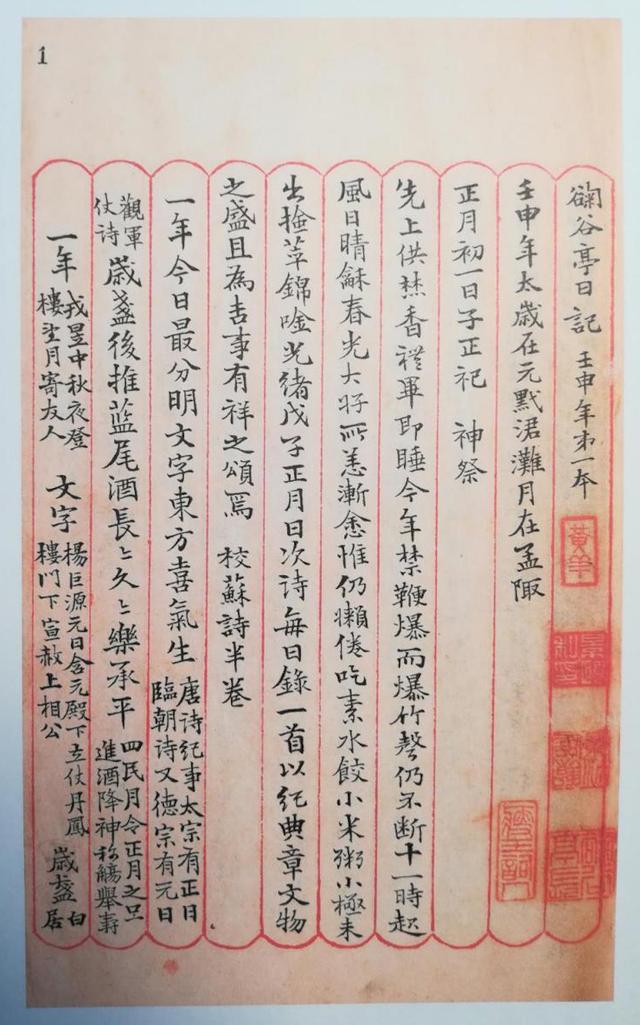 1
鞠谷亭日記 壬申年第一本
壬申年太歲在元黓涒灘月在孟陬
正月初一日子正祀 神祭
先上供焚香禮畢即睡今年禁鞭爆而爆竹聲仍不斷十一時起
風日晴龢春光大好所恙漸愈惟仍嬾倦吃素水餃小米粥小極未
出撿苹錦唫光緒戊子正月日次詩每日錄一首以紀典章文物
之盛且為吉事有祥之頌焉 校蘇詩半卷
一年今日最分明文字東方喜氣生 唐詩紀事太宗有正日
臨朝詩又德宗有元日
觀軍
仗詩 歲盞後推藍尾酒長〻久〻樂承平 四民月令正月之旦
進酒降神称觴舉壽
一年 戎昱中秋夜登
樓望月寄友人 文字 楊巨源元日含元殿下立仗丹鳳
樓門下宣赦上相公 歲盞 白
居
黃羊